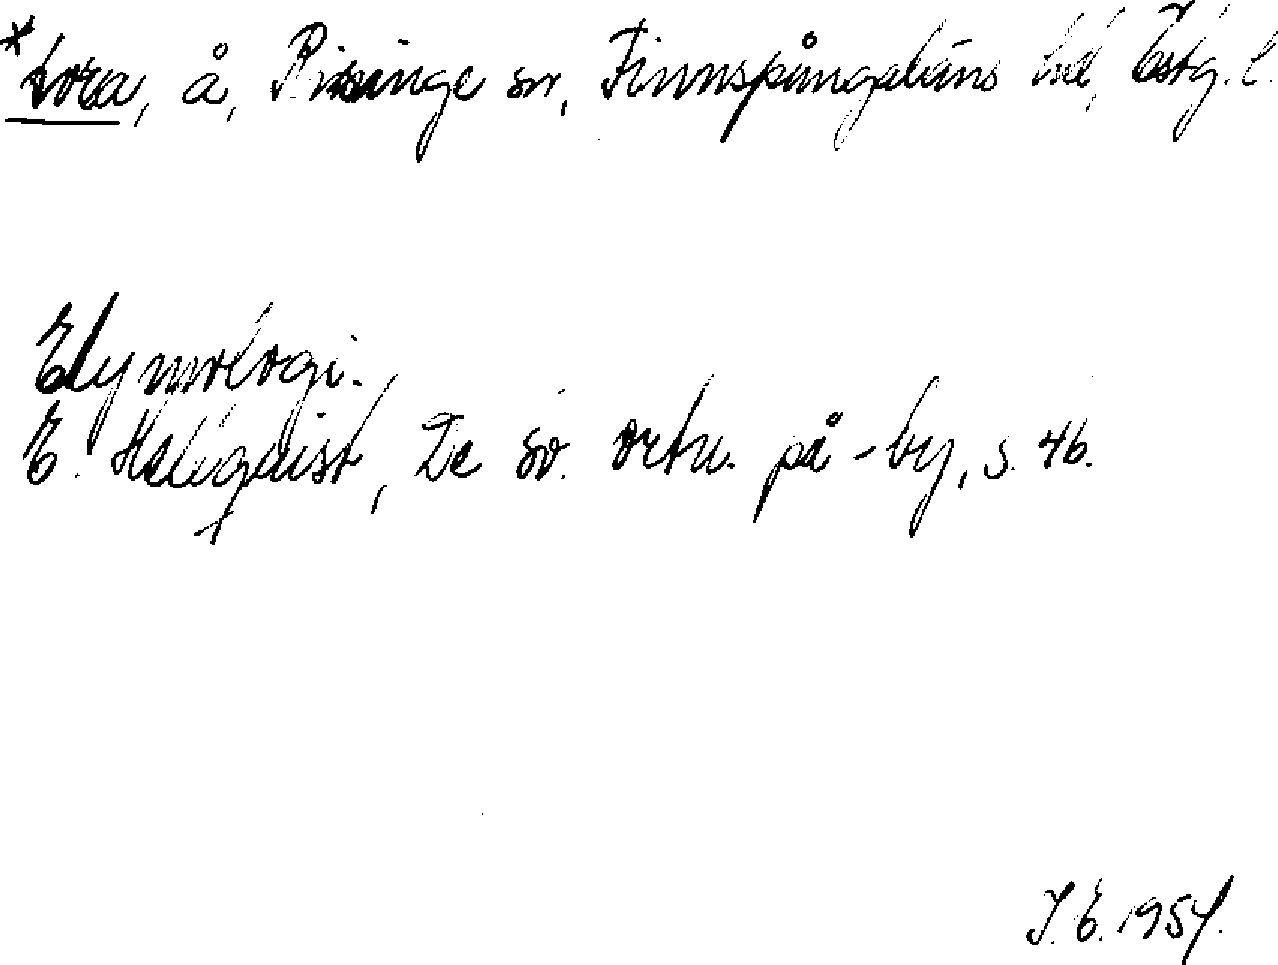 *Dora, å, Risinge sn, Finnspångaläns hd, Östg. l.
Etymologi.
E. Hellquist, De sv. ortn. på -by, s. 46.
J. E. 1954.